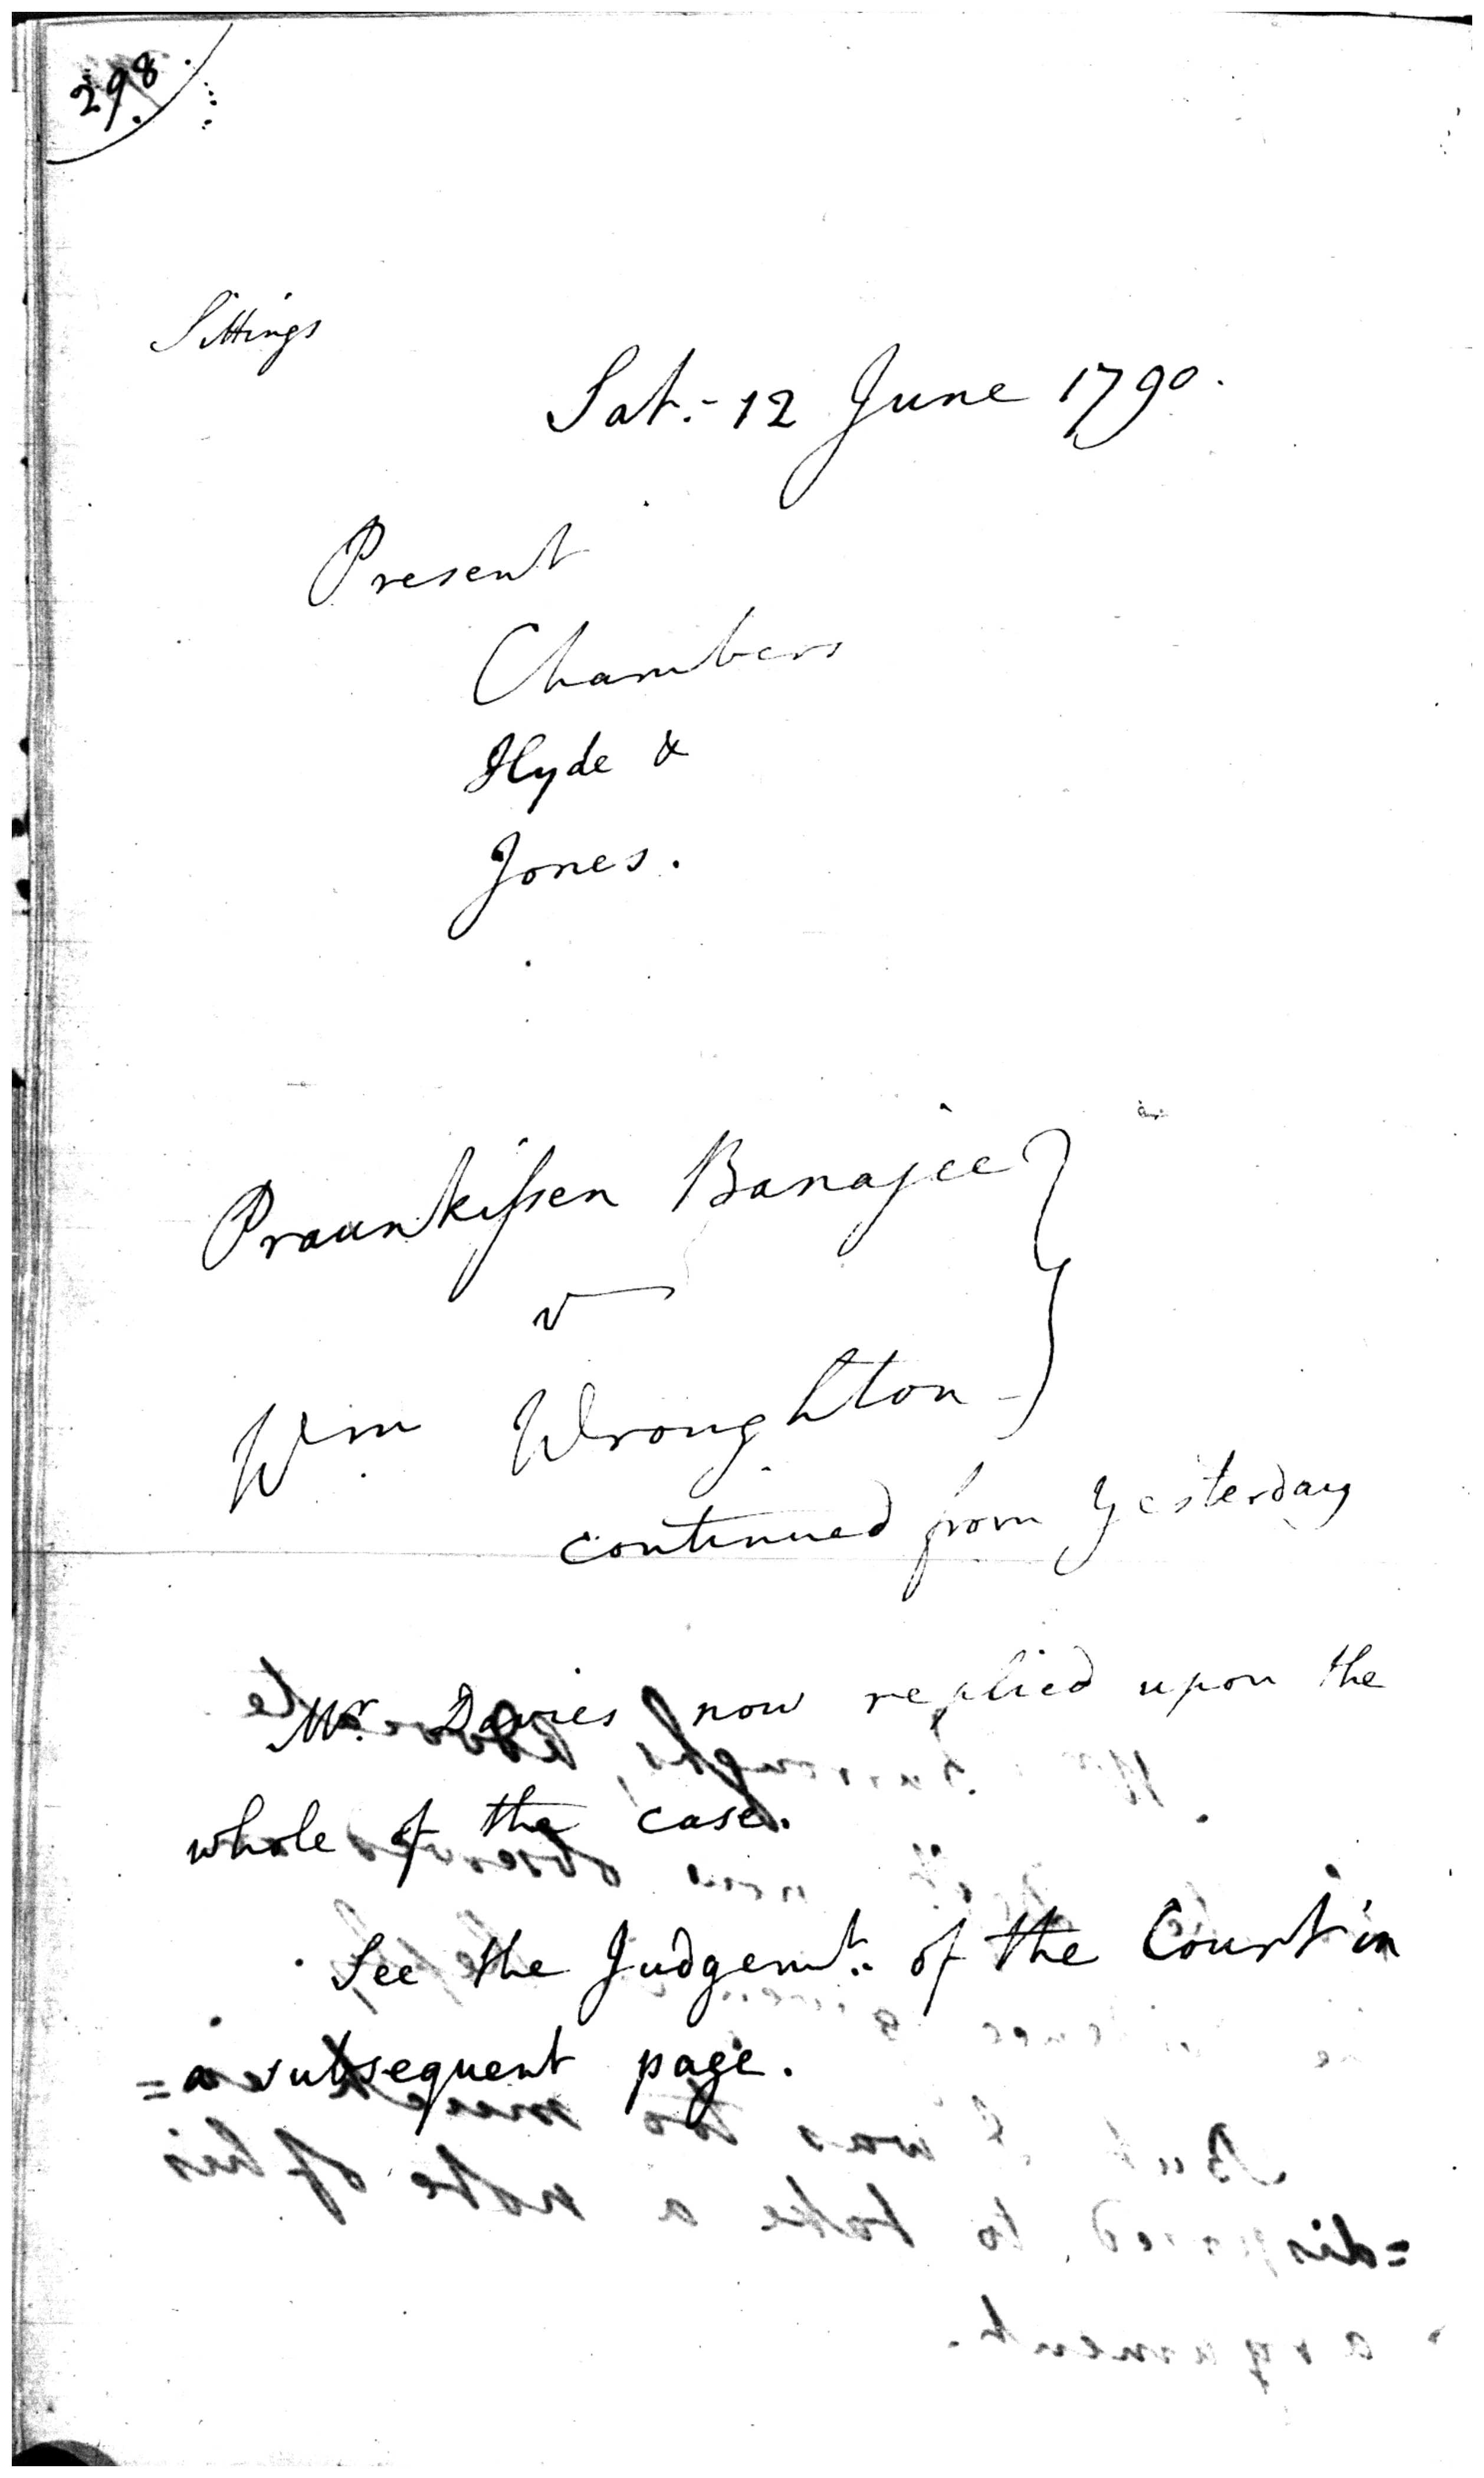 298.
Sittings
Sat.- 12 June 1790.
Present
Chambers
Hyde &
Jones.
Praunkissen Banajee
v
Wm Wroughton
continued from Yesterday
Mr. Davies now replied upon the
whole of the case.
See the Judgemt. of the Court in
a subsequent page.